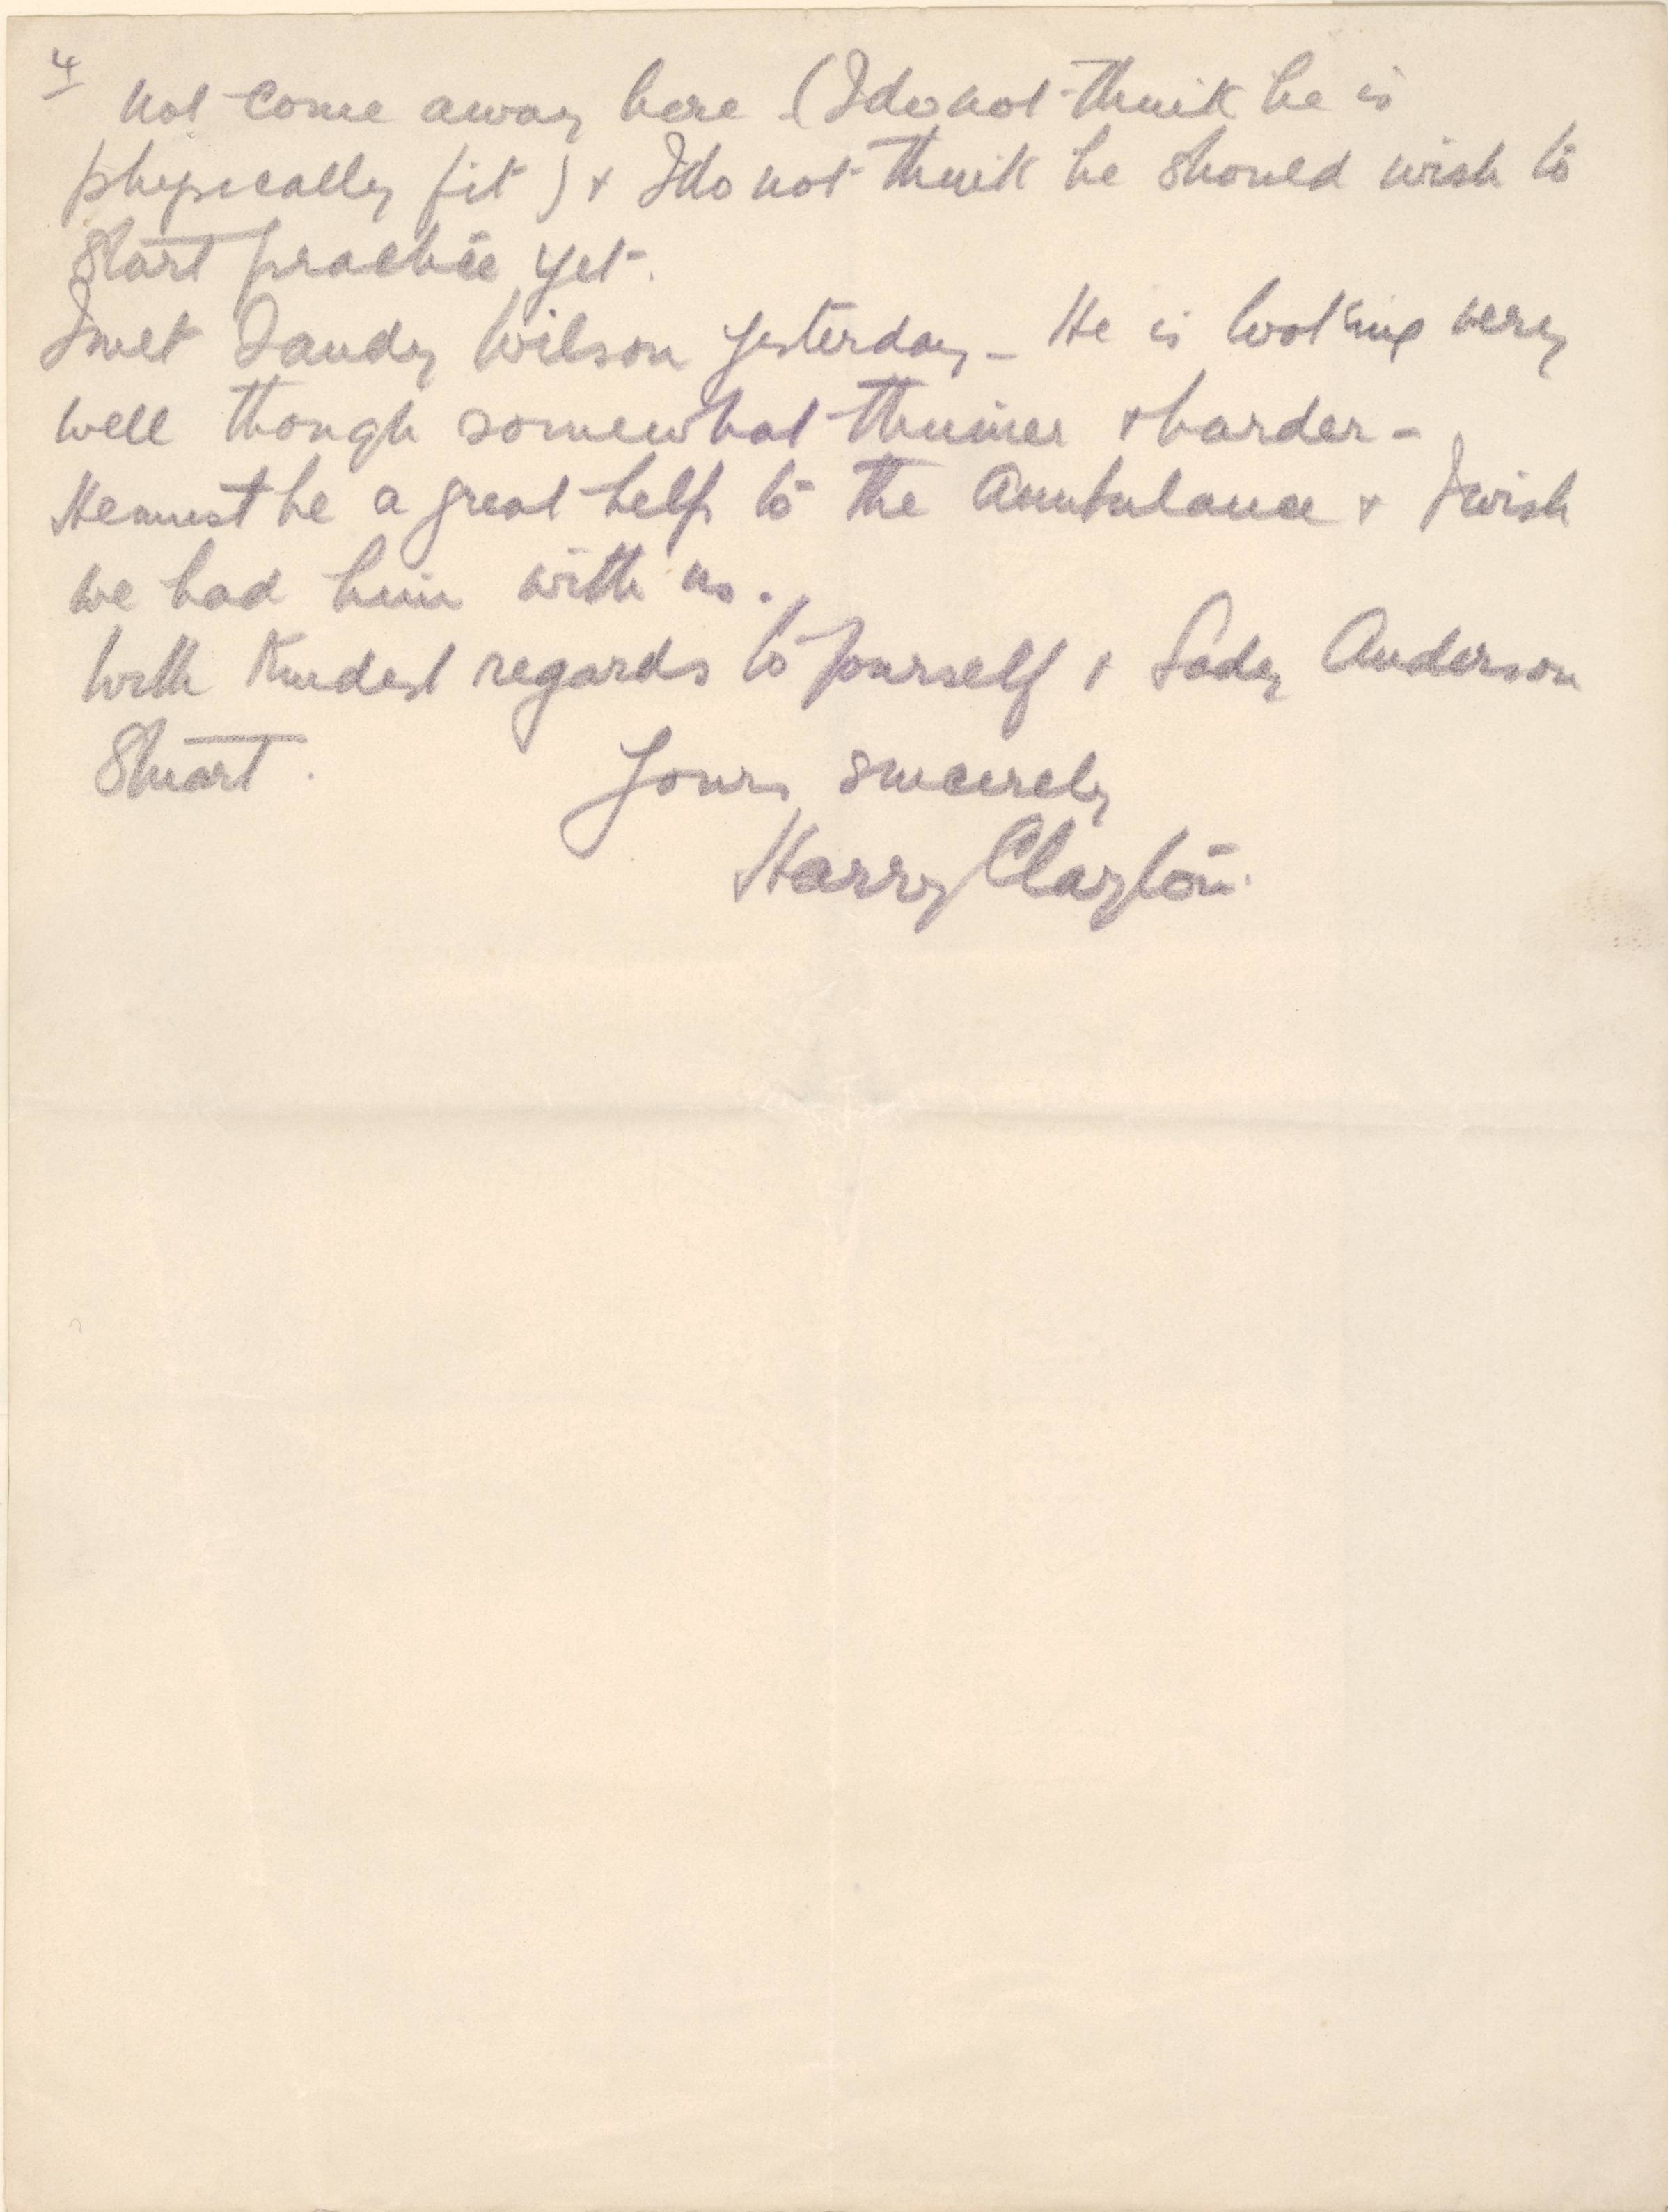 4
not come away here (I do not think he is
physically fit) & I do not think he should wish to
start practice yet.
I met Sandy Wilson yesterday - He is looking very
well though somewhat thinner & harder -
He must be a great help to the Ambulance & I wish
we had him with us.
With kindest regards to yourself & Lady Anderson
Stuart.
Yours sincerely
Harry Clayton.